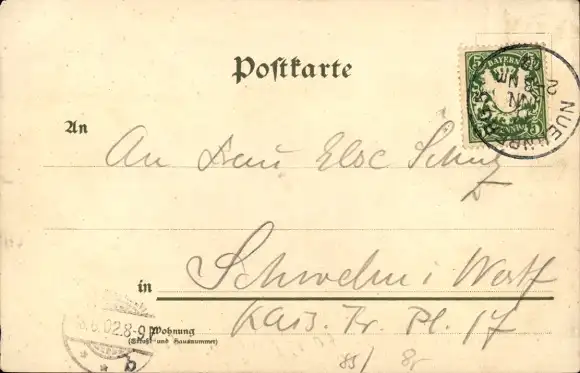 Postkarte
BAYERN
5 5
PFENNIG
NUERNBERG
2
An
An Frau Else Schulz
in
Schwelm i Westf
Wohnung
(Straße und Hausnummer)
Kais. Fr. Pl. 17
6.02.8-9
b